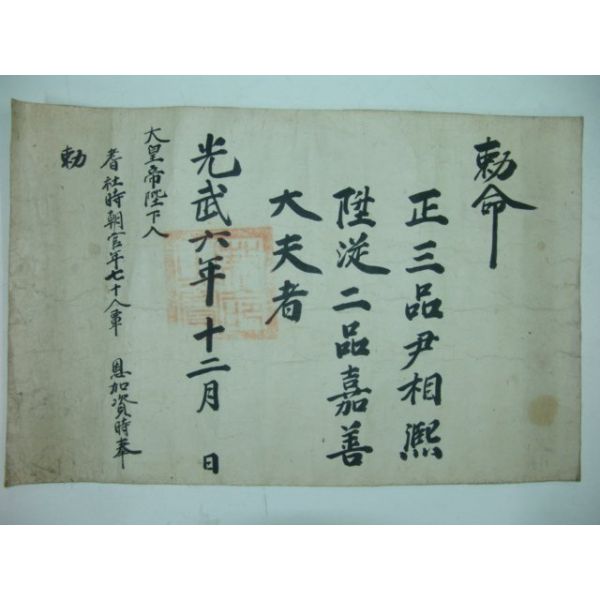 勅命
正三品尹相凞
陞從二品嘉善
大夫者
光武六年十二月 日
大皇帝陛下入
耆社時朝官年七十人 恩加資時奉
勅